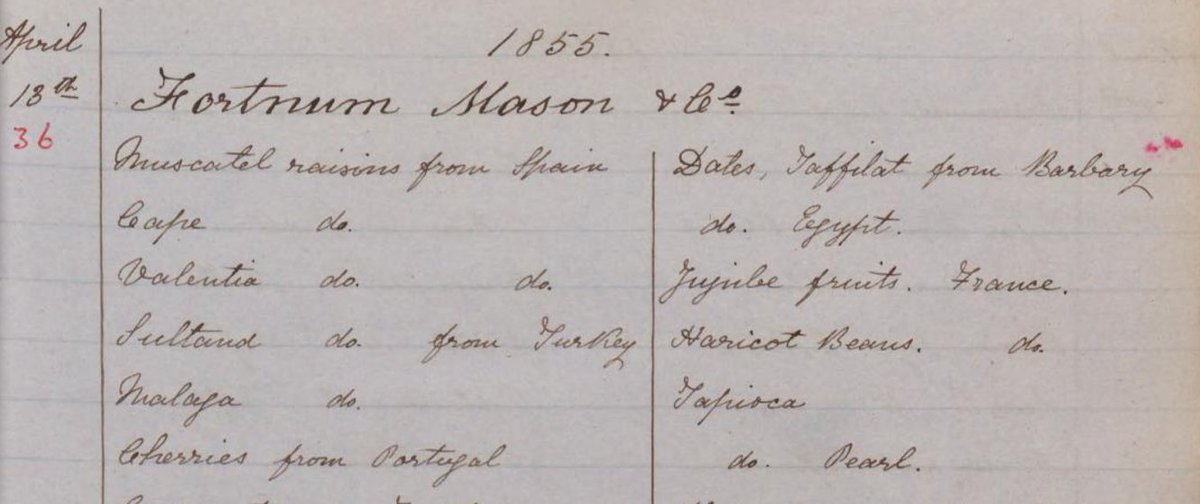 April
1855.
18th
Fortnum Mason & Co.
36
Muscatel raisins from Spain
Cape do.
Valentia do. do.
Sultana do. from Turkey
Malaga do.
Cherries from Portugal
Dates, Taffilat from Barbary
do. Egypt.
Jujube fruits. France.
Haricot Beans. do.
Tapioca
do. Pearl.